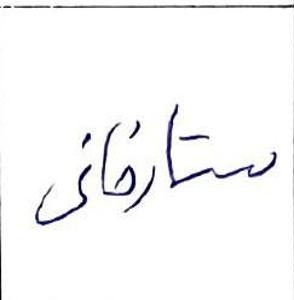 ستارخانی